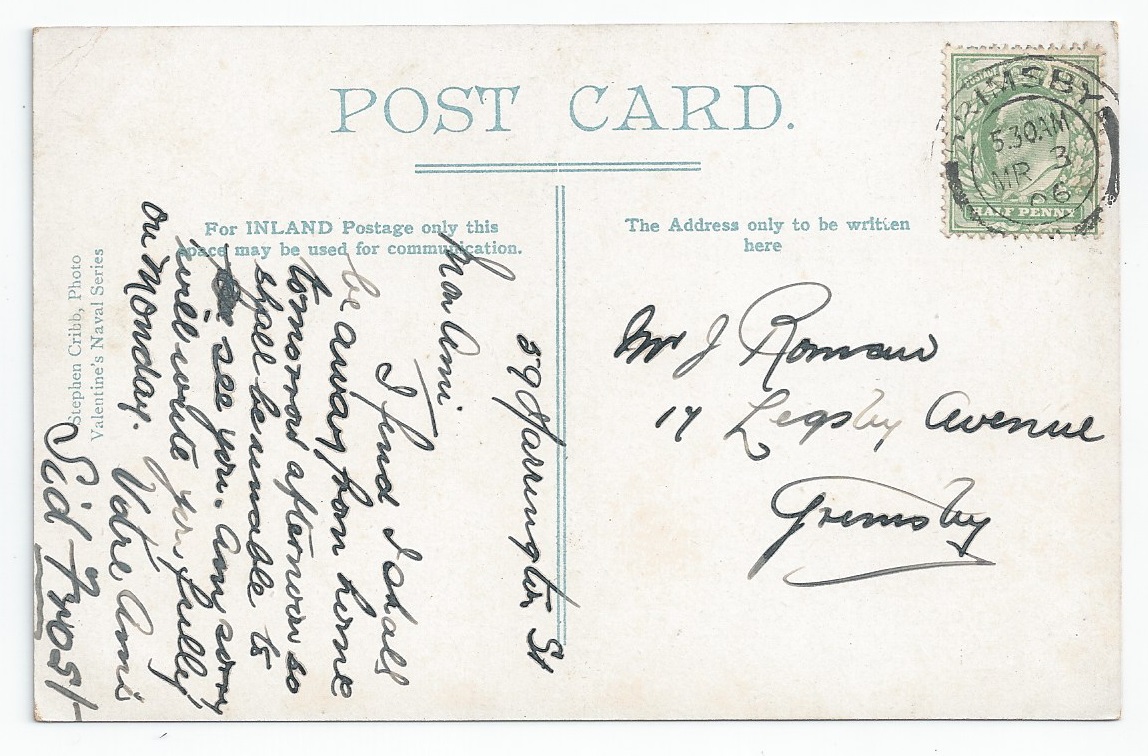 POST CARD.
For INLAND Postage only this
space may be used for communication.
The Address only to be written
here
GRIMSBY
5.30AM
MR 3
06
HALF PENNY
Mr J Roman
17 Legsby Avenue
Grimsby
59 St
Mon Ami.
I find I shall
be away from home
tomorrow afternoon so
shall be unable to
see you. Am sorry
will write you fully
on Monday.
Votre Ami
Sid Frost
Stephen Cribb, Photo
Valentine's Naval Series